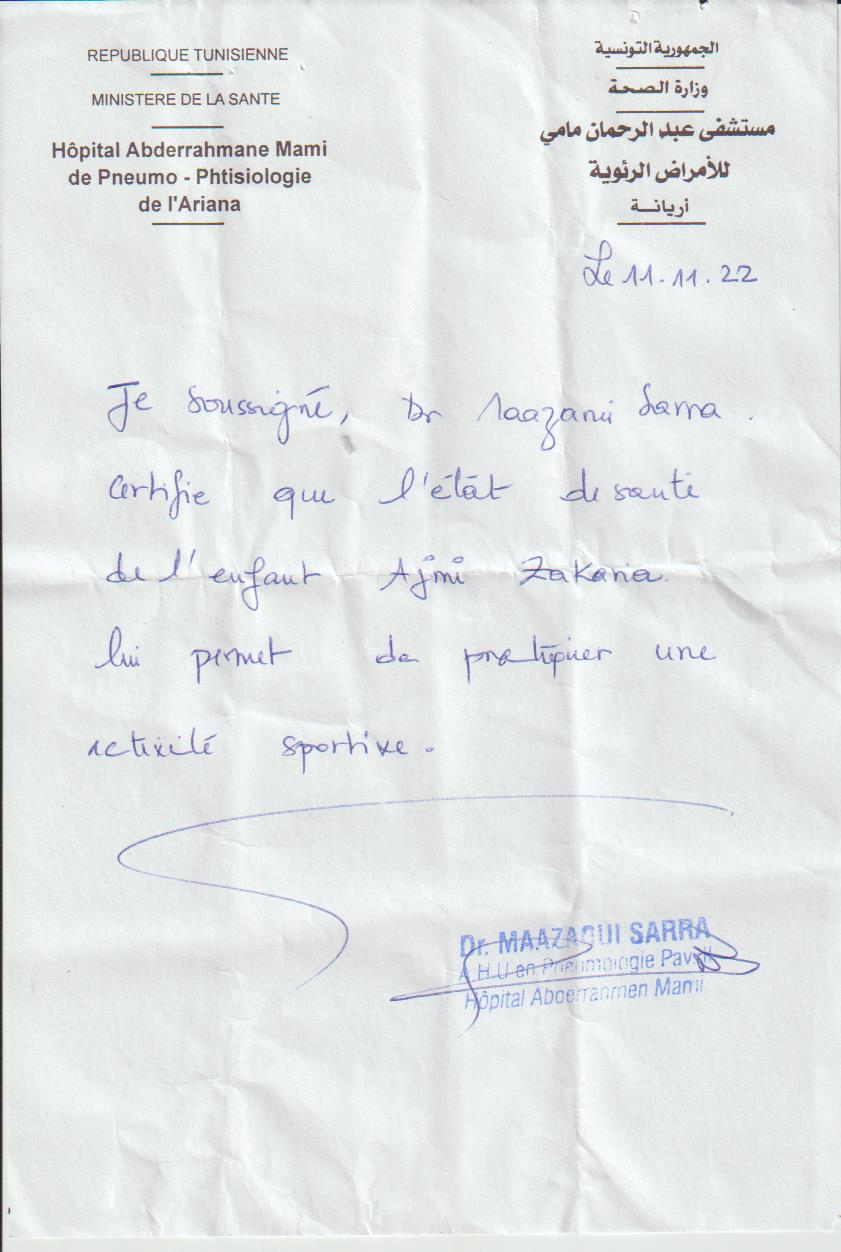 REPUBLIQUE TUNISIENNE
MINISTERE DE LA SANTE
Hôpital Abderrahmane Mami
de Pneumo - Phtisiologie
de l'Ariana
الجمهورية التونسية
وزارة الصحة
مستشفى عبد الرحمان مامي
للأمراض الرئوية
أريانة
Le 11.11.22
Je soussigné, Dr Maazaoui Sarra.
certifie que l'étât de santé
de l'enfant Ajmi Zakaria.
lui permet de pratiquer une
activité sportive.
Dr. MAAZAOUI SARRA
A.H.U en Pneumologie Pav
Hôpital Abderrahmen Mami